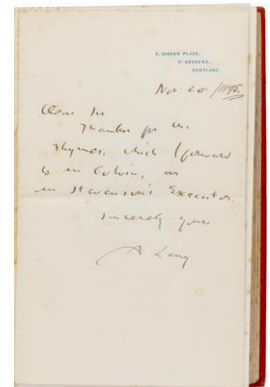 8, GIBSON PLACE,
ST ANDREWS,
SCOTLAND.
Nov 20 /1895.
Dear Sir
Thanks for the
rhymes, which I forward
to Colvin, as
Stevenson's Executor.
Sincerely yours
A Lang